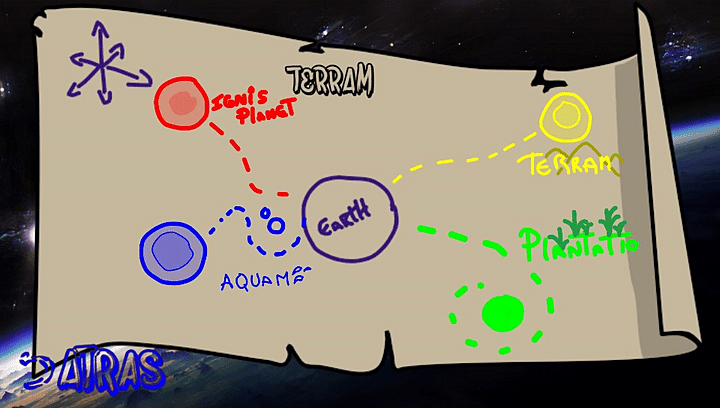 TERRAM
IGNIS
PLANET
TERRAM
EARTH
PLANTATIO
AQUAMA
ATRAS